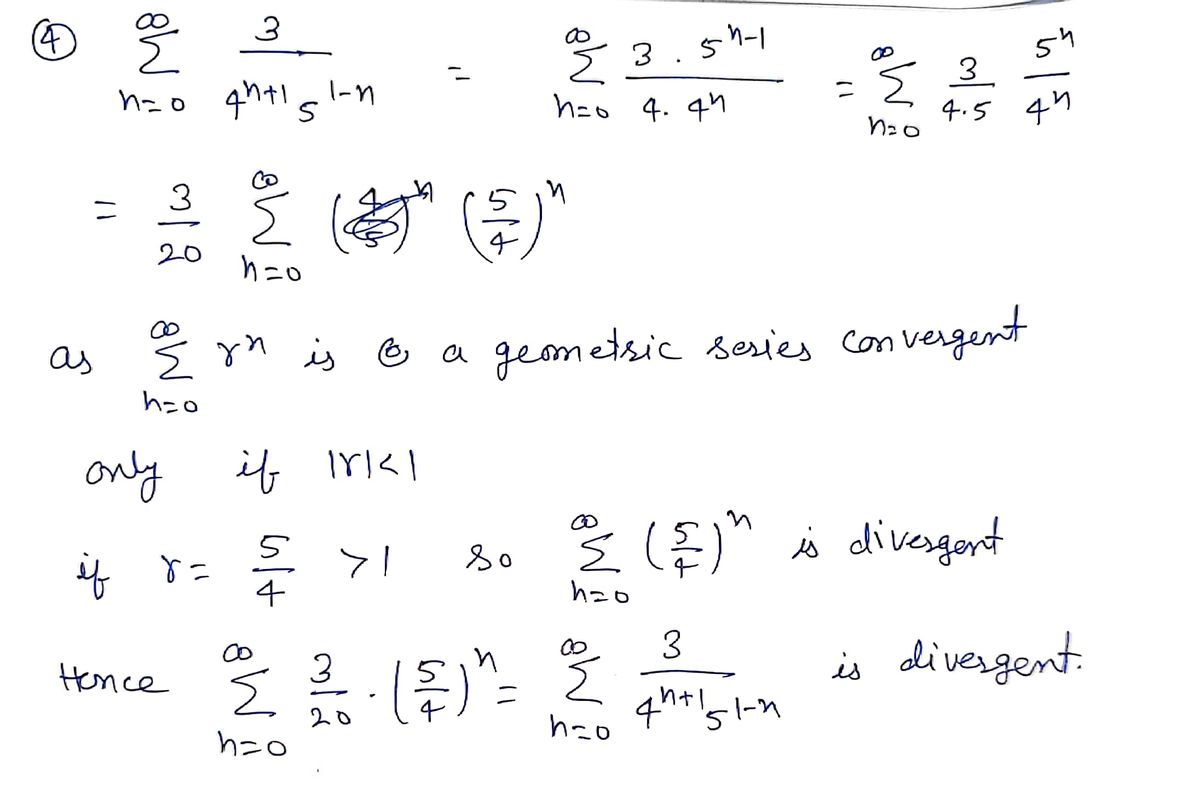 ④ ∑_{n=0}^{∞} 3/(4^{n+1} 5^{1-n}) = ∑_{n=0}^{∞} (3 . 5^{n-1})/(4. 4^n) = ∑_{n=0}^{∞} 3/(4.5) 5^n/4^n
= 3/20 ∑_{n=0}^{∞} (5/4)^n
as ∑_{n=0}^{∞} r^n is a geometric series convergent
only if |r|<1
if r = 5/4 >1 so ∑_{n=0}^{∞} (5/4)^n is divergent
Hence ∑_{n=0}^{∞} 3/20 . (5/4)^n = ∑_{n=0}^{∞} 3/(4^{n+1} 5^{1-n}) is divergent.